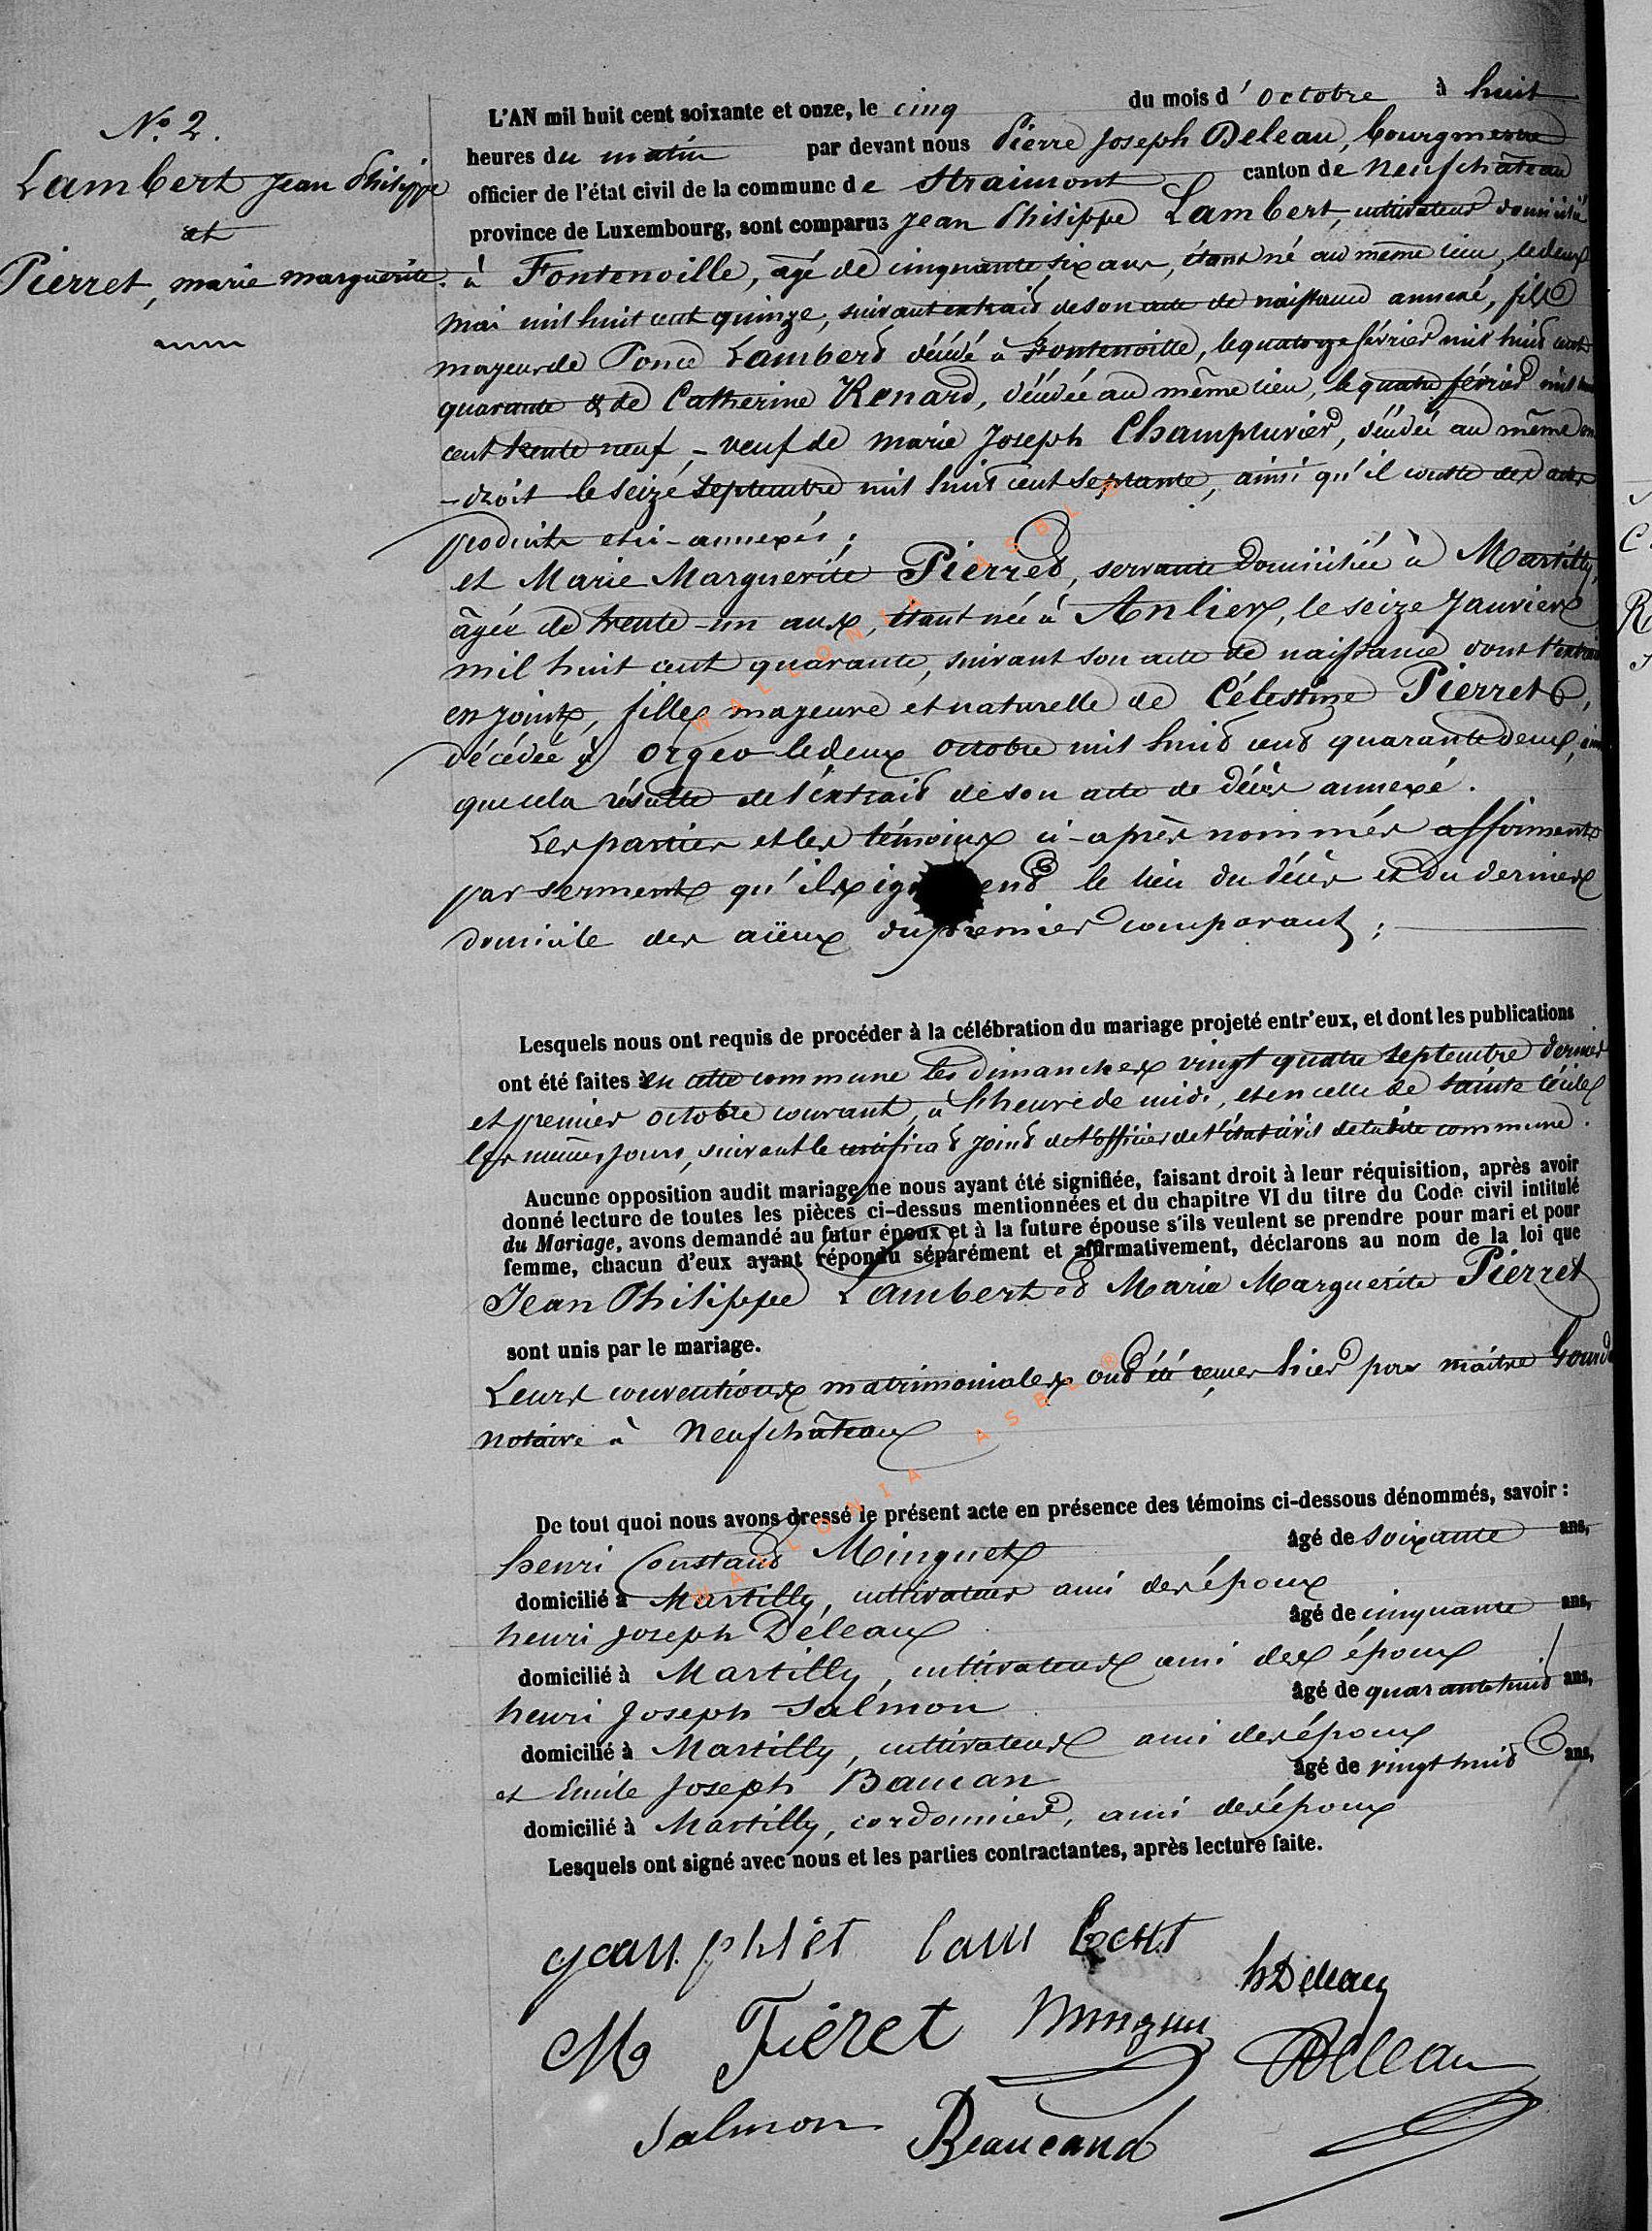 N° 2.
Lambert Jean Philippe
et
Pierret, marie marguerite.
L'AN mil huit cent soixante et onze, le cinq du mois d'octobre à huit
heures du matin par devant nous Pierre Joseph Deleau, bourgmestre
officier de l'état civil de la commune de Straimont canton de Neufchâteau
province de Luxembourg, sont comparus Jean Philippe Lambert, cultivateur domicilié
à Fontenoille, âgé de cinquante six ans, étant né au même lieu, le deux
mai mil huit cent quinze, suivant extrait de son acte de naissance annexé, fils
majeur de Ponce Lambert décédé à Fontenoille, le quatorze février mil huit cent
quarante & de Catherine Renard, décédée au même lieu, le quatre février mil huit
cent trente neuf, - veuf de marie Joseph Champluvier, décédée au même en
-droit le seize septembre mil huit cent septante, ainsi qu'il conste des actes
produits et ci-annexés ;
et Marie Marguerite Pierret, servante domiciliée à Martilly,
âgée de trente-un ans, étant née à Anlier, le seize Janvier
mil huit cent quarante, suivant son acte de naissance dont l'extrait
en joint, fille majeure et naturelle de Célestine Pierret,
décédée à Orgeo le deux octobre mil huit cent quarante deux, ainsi
que cela résulte de l'extrait de son acte de décès annexé.
Les parties et les témoins ci-après nommés affirment
par serment qu'ils ig ent le lieu du décès et du dernier
domicile des aïeux du premier comparant ;
Lesquels nous ont requis de procéder à la célébration du mariage projeté entr'eux, et dont les publications
ont été faites en cette commune les dimanches vingt quatre septembre dernier
et premier octobre courant, à l'heure de midi, et en celle de Sainte Cécile
les mêmes jours, suivant le certificat joint de l'officier de l'état civil de ladite commune.
Aucune opposition audit mariage ne nous ayant été signifiée, faisant droit à leur réquisition, après avoir
donné lecture de toutes les pièces ci-dessus mentionnées et du chapitre VI du titre du Code civil intitulé
du Mariage, avons demandé au futur époux et à la future épouse s'ils veulent se prendre pour mari et pour
femme, chacun d'eux ayant répondu séparément et affirmativement, déclarons au nom de la loi que
Jean Philippe Lambert et Marie Marguerite Pierret
sont unis par le mariage.
Leurs conventions matrimoniales ont été reçues hier par maître
notaire à Neufchâteau
De tout quoi nous avons dressé le présent acte en présence des témoins ci-dessous dénommés, savoir :
henri Constant Minguet âgé de soixante ans,
domicilié à Martilly, cultivateur ami des époux
henri Joseph Deleau âgé de cinquante ans,
domicilié à Martilly, cultivateur ami des époux
henri Joseph Salmon âgé de quarante huit ans,
domicilié à Martilly, cultivateur ami des époux
et Emile Joseph Baucan âgé de vingt huit ans,
domicilié à Martilly, cordonnier, ami des époux
Lesquels ont signé avec nous et les parties contractantes, après lecture faite.
hDeleau
M Pieret
Deleau
Salmon Beaucand
WALLONIA ASBL
WALLONIA ASBL ®